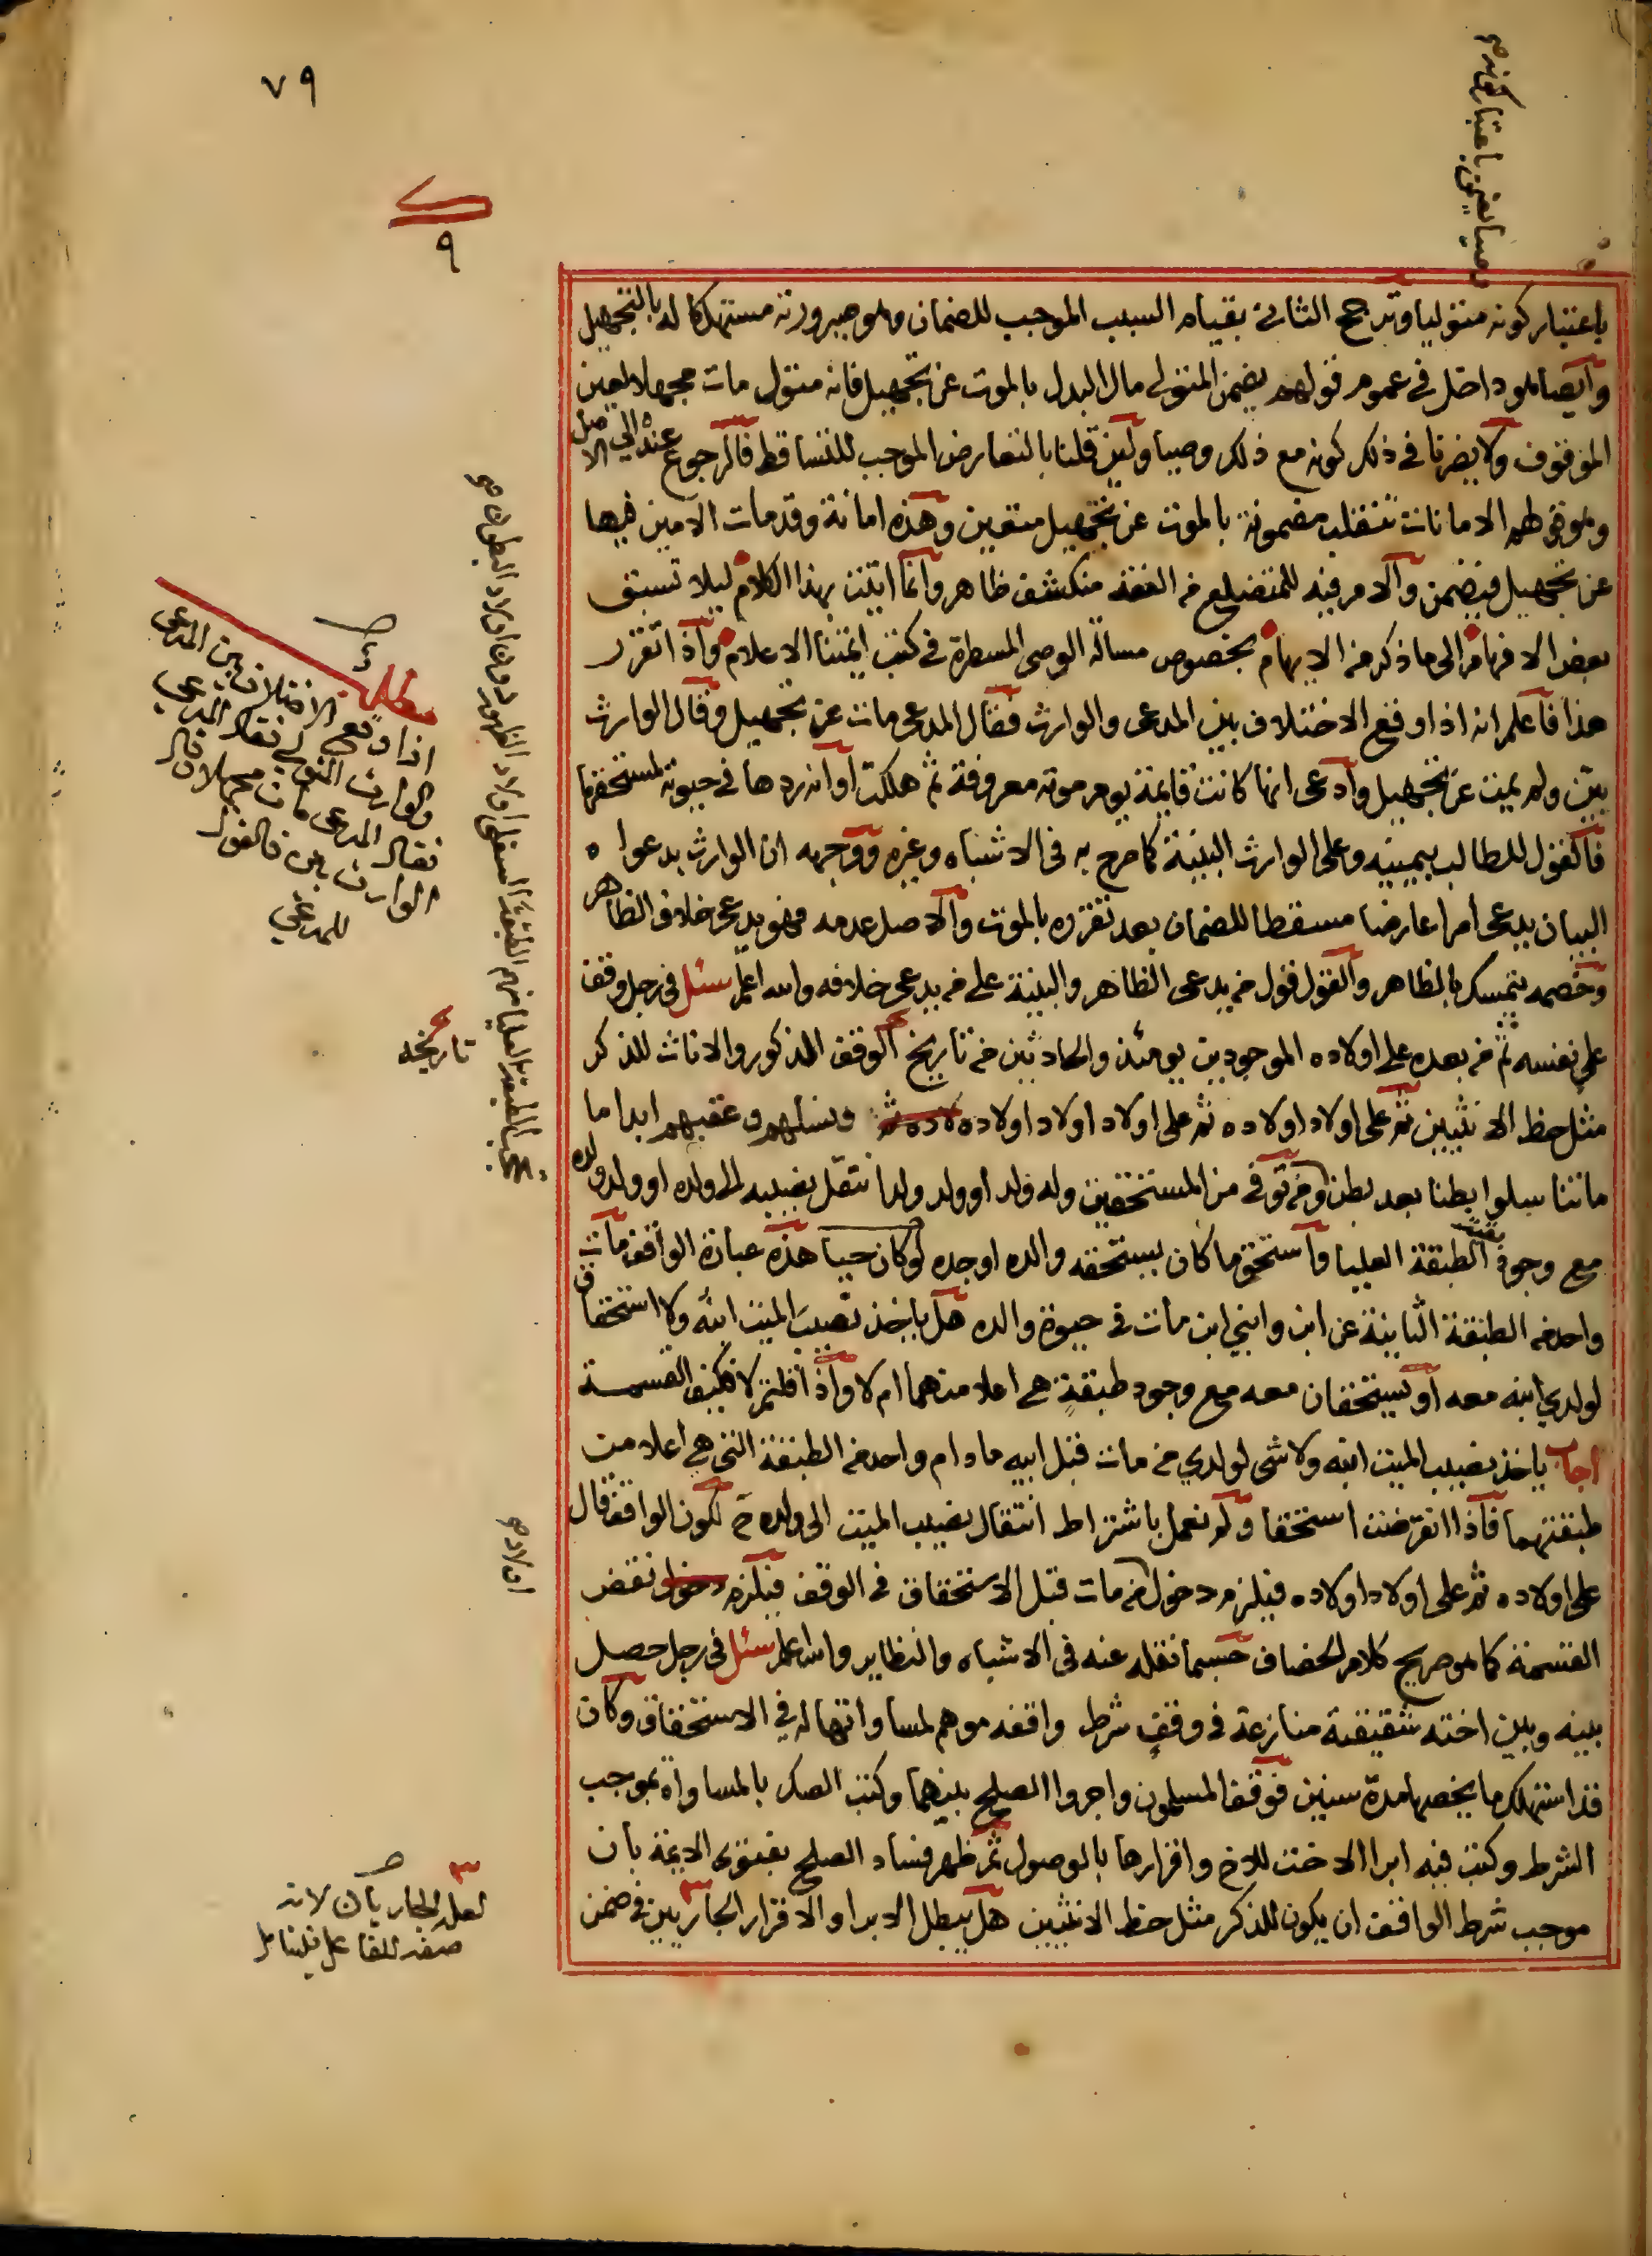 ٧٩
٩
باعتبار كونه متوليا وترجح الثاني بقيام السبب الموجب للضمان وهو صيرورته مستهلكا له بالتجهيل
وايضا هو داخل في عموم قولهم يضمن المتولي مال البدل بالموت عن تجهيل فانه متول مات مجهلا لعين
الموقوف ولا يضرنا في ذلك كونه مع ذلك وصيا ولئن قلنا بالتعارض الموجب للتساقط فالرجوع عنده الي الاصل
وهو قولهم الامانات تنقلب مضمونة بالموت عن تجهيل متعين وهذه امانة وقد مات الامين فيها
عن تجهيل فيضمن والامر فيه للمتضلع من الفقه منكشف ظاهر وانما اتيت بهذا الكلام ليلا تسبق
بعض الافهام الى ما ذكر من الابهام بخصوص مسالة الوصي المسطرة في كتب ائمتنا الاعلام واذا تقرر
هذا فاعلم انه اذا وقع الاختلاف بين المدعي والوارث فقال المدعي مات عن تجهيل وقال الوارث
بين ولم يمت عن تجهيل وادعى انها كانت قايمة يوم موته معروفة ثم هلكت او انه ردها في حيوته لمستحقها
فالقول للطالب بيمينه وعلى الوارث البينة كما صرح به في الاشباه وغيره ووجهه ان الوارث بدعواه
البيان يدعي امرا عارضا مسقطا للضمان بعد تقرره بالموت والاصل عدمه فهو يدعي خلاف الظاهر
وخصمه يتمسك بالظاهر والقول قول من يدعي الظاهر والبينة على من يدعي خلافه والله اعلم سئل في رجل وقف
على نفسه ثم من بعده على اولاده الموجودين يومئذ والحادثين من تاريخ الوقف الذكور والاناث للذكر
مثل حظ الانثيين ثم على اولاد اولاده ثم على اولاد اولاد اولاده ونسلهم وعقبهم ابدا ما
ماتناسلوا بطنا بعد بطن ومن توفي من المستحقين وله ولد او ولد ولد انتقل نصيبه الى ولده او ولد ولده
مع وجود بقية الطبقة العليا واستحق ما كان يستحقه والده او جده لو كان حيا هذه عبارة الواقف مات
واحد من الطبقة الثانية عن ابن وابني ابن مات في حيوة والده هل ياخذ نصيب الميت ابنه ولا استحقاق
لولدي ابنه معه او يستحقان معه مع وجود طبقة هي اعلا منهما ام لا واذا قلتم لا فكيف القسمة
اجاب ياخذ نصيب الميت ابنه ولا شي لولدي من مات قبل ابيه ما دام واحد من الطبقة التي هي اعلا من
طبقتهما فاذا انقرضت استحقا ولم نعمل باشتراط انتقال نصيب الميت الى ولده ح لكون الواقف قال
على اولاده ثم على اولاد اولاده فيلزم دخول من مات قبل الاستحقاق في الوقف فيلزم نقض
القسمة كما هو صريح كلام الخصاف حسبما نقله عنه في الاشباه والنظاير والله اعلم سئل في رجل حصل
بينه وبين اخته شقيقته منازعة في وقف شرط واقفه موهم لمساواتها له في الاستحقاق وكان
قد استهلك ما يخصها مدة سنين فوقف المسلمون واجروا الصلح بينهما وكتب الصك بالمساواة بموجب
الشرط وكتب فيه ابرا الاخت للاخ واقرارها بالوصول ثم ظهر فساد الصلح بفتوى الايمة بان
موجب شرط الواقف ان يكون للذكر مثل حظ الانثيين هل يبطل الابرا والاقرار الجاريين في ضمن
مطلب
اذا وقع الاختلاف بين المدعي
والوارث
فقال المدعي مات مجهلا وقال
الوارث بين فالقول
للمدعي
تاريخه
تحجب الطبقة العليا منهم الطبقة السفلى اولاد الظهور دون اولاد البطون صح
اولاد صح
٣
لعله الجاريان لانه
صفة للفاعل فليتامل